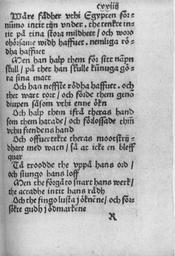 cxxiiij
Wåre fådher vthi Egypten för
nummo intit tijn vnder, the tenkte int
tit på tina stora mildheet / och woro
ohörsamme widh haffuet, nemliga rö
dha haffuet
Men han halp them för sitt nampn
skull / på thet han skulle kunnoga gö
ra sina mact
Och han neffste rödha haffuit, och
thet wart tort / och förde them genom
diupen såsom vthi enne ökn
Och halp them ifrå theras hand
som them hatade / och förlossade them
vthu fiendens hand
Och offuertekte theras mootstrij-
dhare med watn / så at icke en bleff
quar
Tå troodde the vppå hans ord /
och siungo hans loff
Men the förgåto snart hans werk /
the actadhe intit hans rådh
Och the fingo lusta j öknene / och för-
sökte gudh j ödmarkene
R